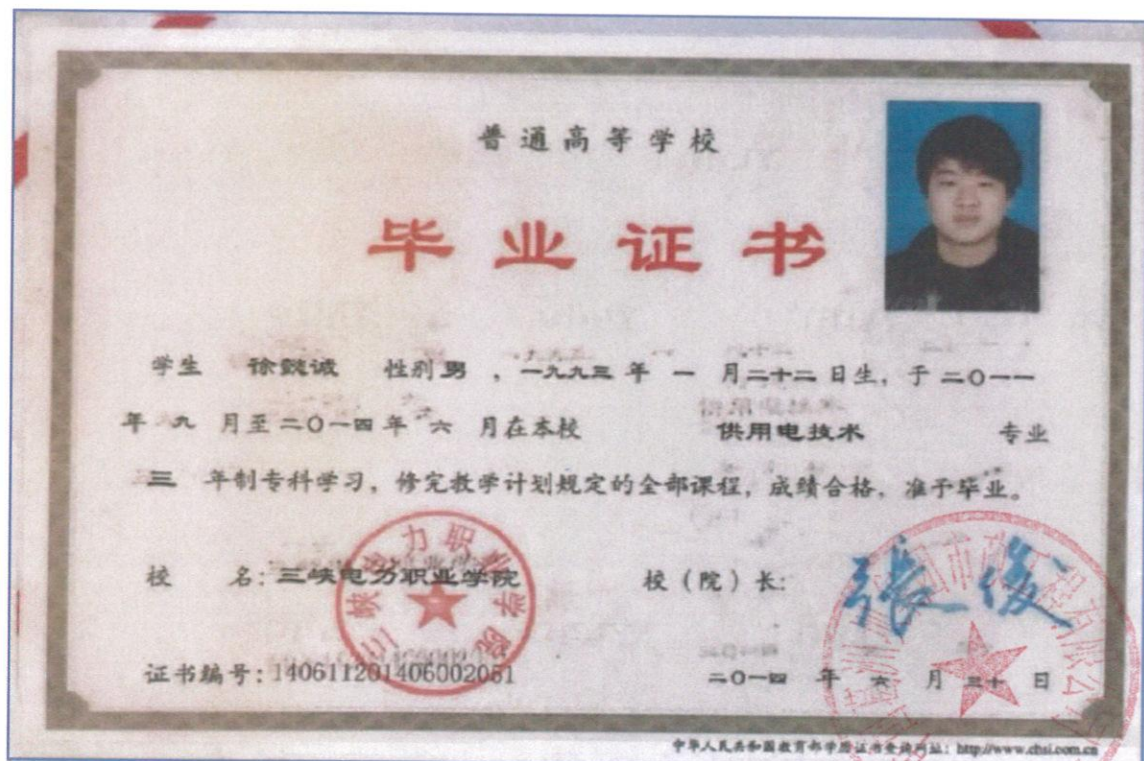 普通高等学校
毕业证书
学生 徐懿诚 性别男，一九九三年 一 月二十二日生，于二〇一一
年 九 月至二〇一四年 六 月在本校 供用电技术 专业
三 年制专科学习，修完教学计划规定的全部课程，成绩合格，准予毕业。
校 名：三峡电力职业学院 校（院）长：張俊
三峡电力职业学院
证书编号：140611201406002051 二〇一四 年 六 月 三十 日
中华人民共和国教育部学历证书查询网址：http://www.chsi.com.cn